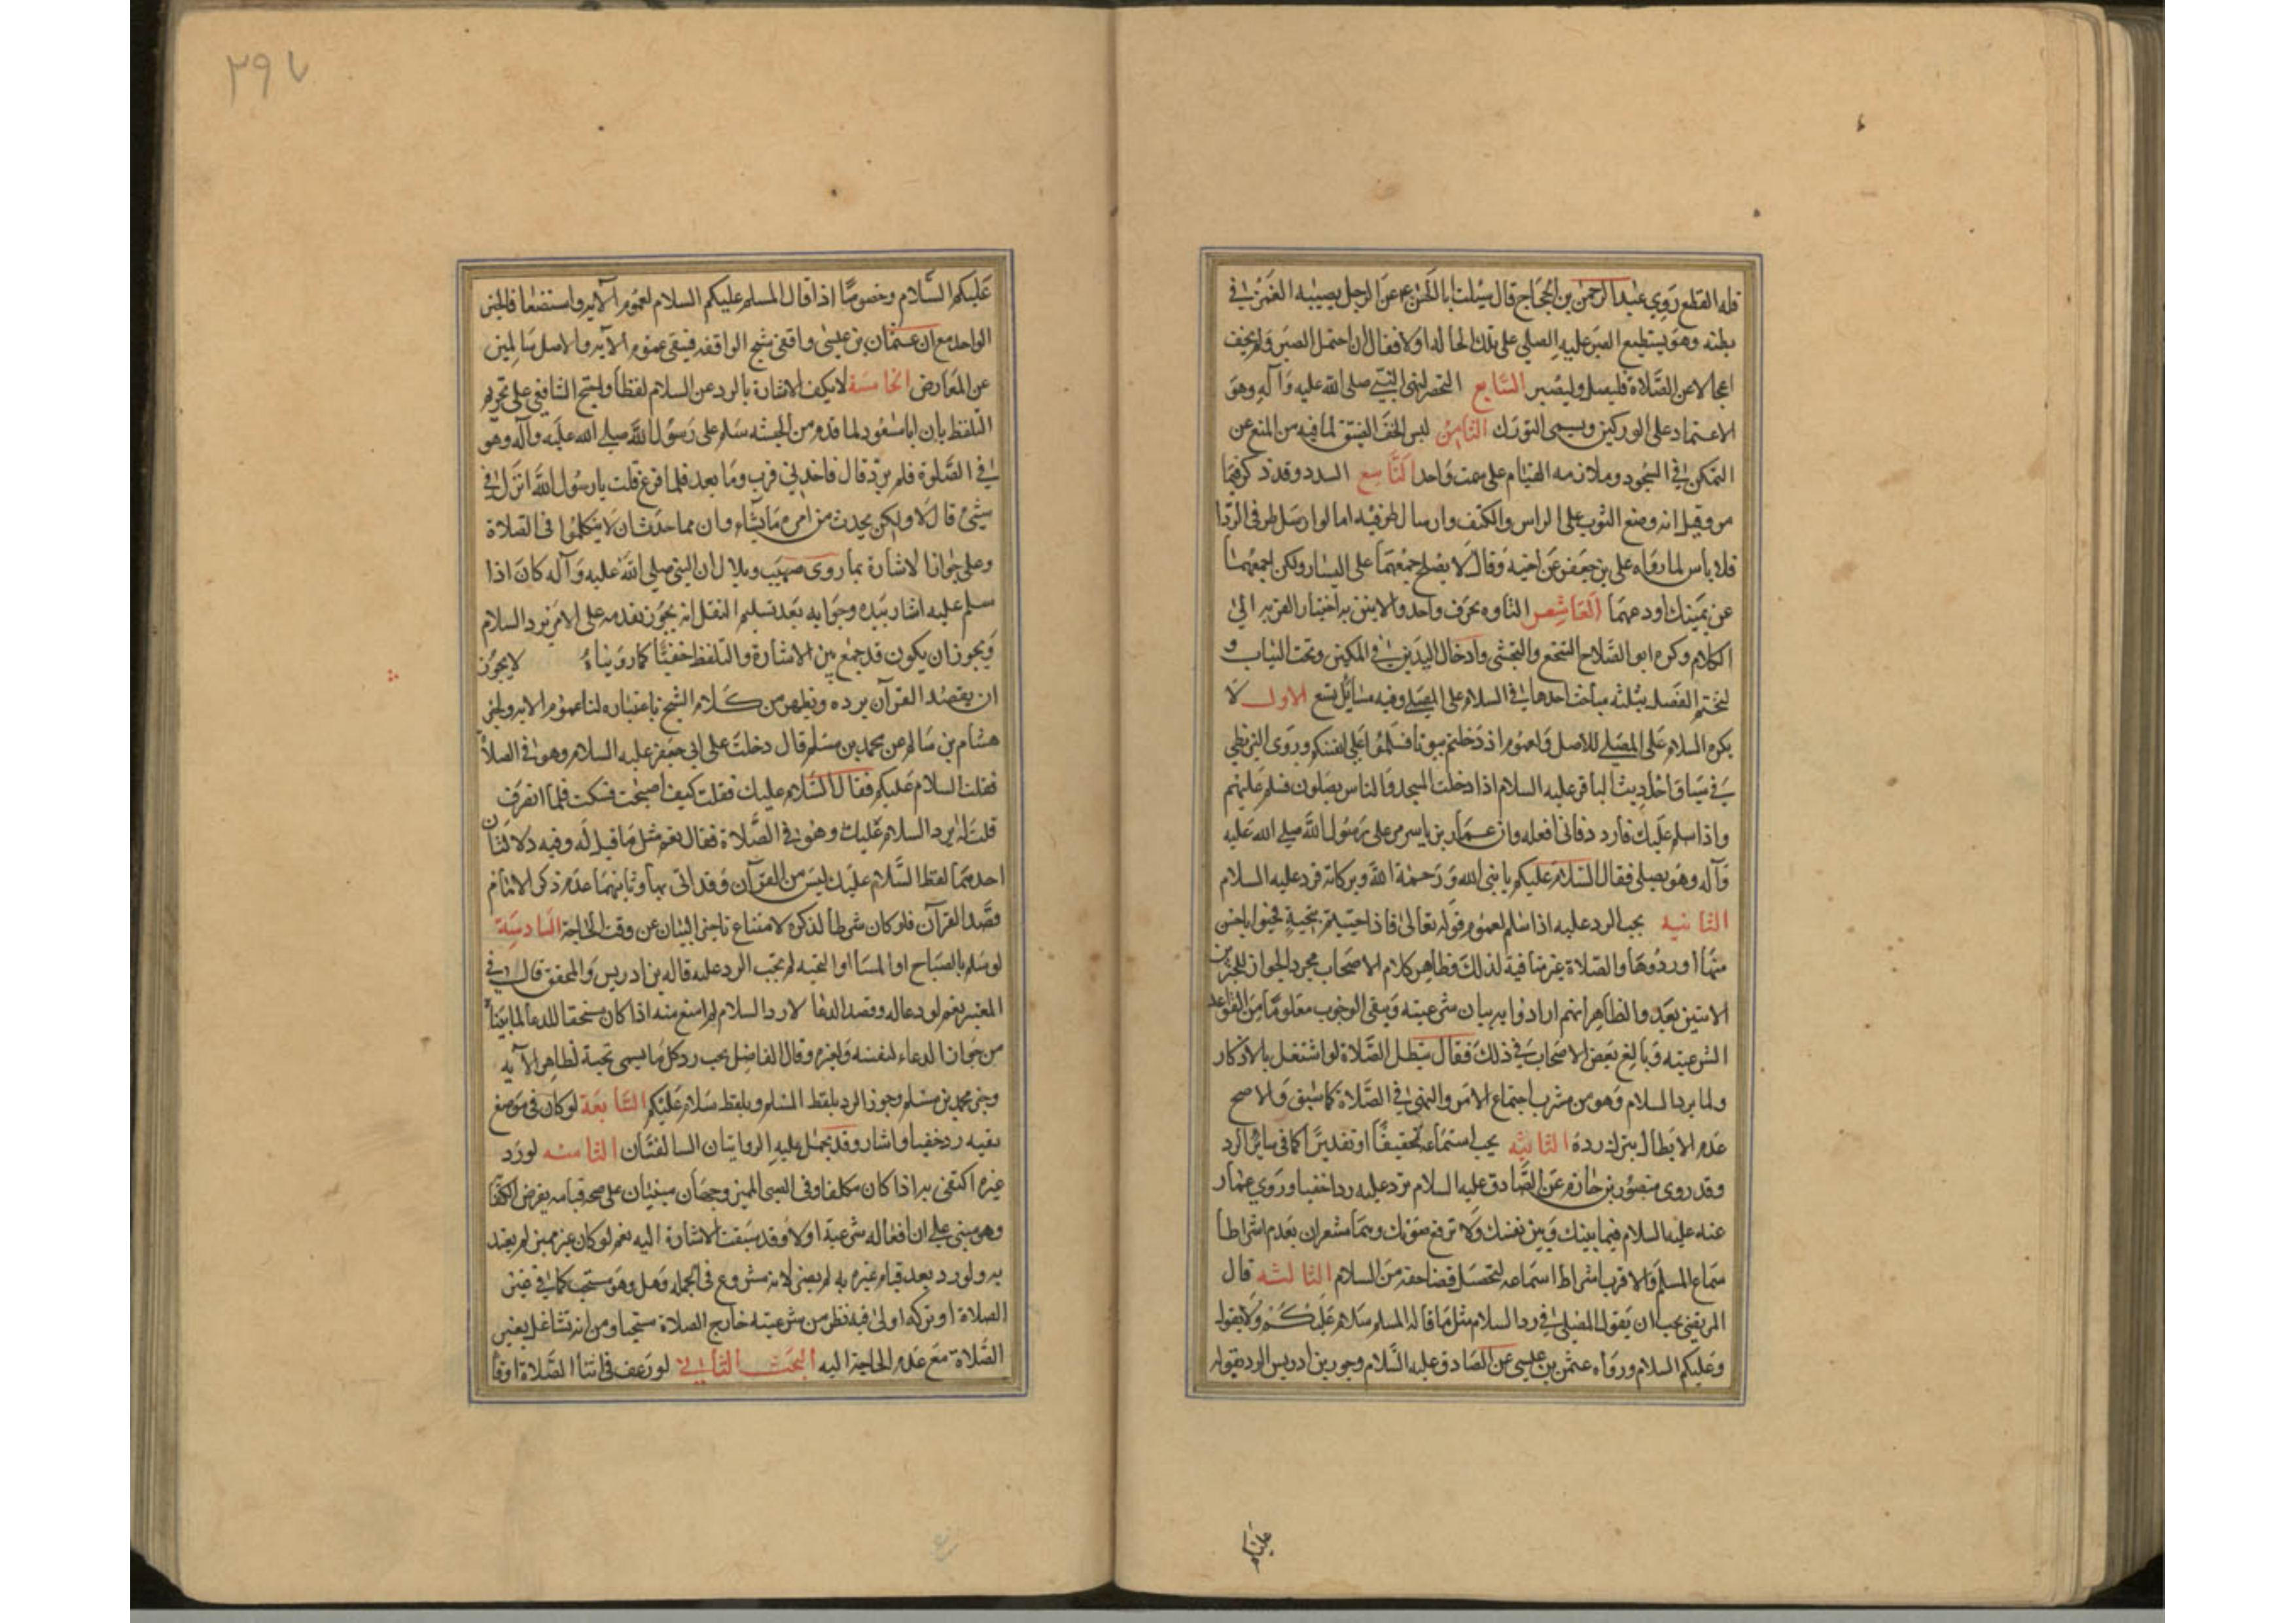 فله القطع روي عبد الرحمن بن الحجاج قال سئلت ابا الحسن ع عن الرجل يصيبه الغمز في
بطنه وهو يستطيع الصبر عليه ايصلي على تلك الحال له او لا فقال ان احتمل الصبر ولم يخف
اعجالا عن الصلاة فليصل وليصبر السابع التخصر لنهي النبي صلى الله عليه وآله وهو
الاعتماد على الوركين ويسمى التورك الثامن لبس الخف الضيق لما فيه من المنع عن
التمكن في السجود وملازمه القيام على سمت واحد التاسع السدد وقد ذكر فيما
مر وقيل انه وضع الثوب على الراس والكتف وارسال طرفيه اما لو ارسل طرفي الردا
فلا باس لما رواه علي بن جعفر عن اخيه وقال لا يصلح جمعهما على اليسار ولكن اجمعهما
عن يمينك او دعهما العاشر التاوه بحرف واحد والانين به اختيار القربه الى
الكلام وكره ابو الصلاح التنخع والتجشي وادخال اليدين في الكمين وتحت الثياب و
لنختم الفصل بثلثه مباحث احدها في السلام على المصلي وفيه مسايل تسع الاول لا
يكره السلام على المصلي للاصل ولعموم اذ دخلتم بيوتا فسلموا على انفسكم وروى البزنطي
في سياق احاديث الباقر عليه السلام اذا دخلت المسجد والناس يصلون فسلم عليهم
واذا سلم عليك فاردد فاني افعله وان عمار بن ياسر مر على رسول الله صلى الله عليه
وآله وهو يصلي فقال السلام عليكم يا نبي الله ورحمة الله وبركاته فرد عليه السلام
الثانيه يجب الرد عليه اذا سلم لعموم قوله تعالى فاذا حييتم بتحية فحيوا باحسن
منها او ردوها والصلاة غير منافية لذلك وظاهر كلام الاصحاب مجرد الجواز للخبرين
الاتيين بعد والظاهر انهم ارادوا به بيان شرعيته ويبقى الوجوب معلوما من القواعد
الشرعيته وبالغ بعض الاصحاب في ذلك فقال يبطل الصلاة لو اشتغل بالاذكار
ولما يرد السلام وهو من مشرب اجتماع الامر والنهى في الصلاة كما سبق والاصح
عدم الابطال بترك رده الثانيه يجب استماعه تحقيقا او تقديرا كما في سائر الرد
وقد روى منصور بن حازم عن الصادق عليه السلام ترد عليه ردا خفيا وروي عمار
عنه عليه السلام فيما بينك وبين نفسك ولا ترفع صوتك وهما مشعران بعدم اشتراط
سماع المسلم والاقرب اشتراط اسماعه لتحصيل قضا حقه من السلام الثالثه قال
المرتضى يجب ان يقول المصلي في رد السلام مثل ما قال له المسلم سلام عليكم ولا يقول
وعليكم السلام ورواه عثمن بن عيسى عن الصادق عليه السلام وجوز بن ادريس الرد بقوله
علیکم
۳۹۷
عليكم السلام وخصوصا اذا قال المسلم عليكم السلام لعموم الايه واستضعافا لخبر
الواحد مع ان عثمان بن عيسى واقفي شيخ الواقفه فيبقى عموم الآيه والاصل سالمين
عن المعارض الخامسة لا يكفي الاشارة بالرد عن السلام لفظا واحتج الشافعي على تحريم
التلفظ بان ابا مسعود لما قدم من الحبشه سلم على رسول الله صلى الله عليه وآله وهو
في الصلوة فلم يرد قال فاخذني قرب وما بعد فلما فرغ قلت يا رسول الله انزل في
شئ قال لا ولكن يحدث من امره ما يشاء وان مما حدث ان لا يتكلموا في الصلاة
وعلى جواز الاشارة بما روى صهيب وبلال ان النبي صلى الله عليه وآله كان اذا
سلم عليه اشار بيده وجوابه بعد تسليم النقل انه يجوز تقدمه على الامر برد السلام
ويجوز ان يكون قد جمع بين الاشارة والتلفظ خفيا كما رويناه لا يجوز
ان يقصد القرآن برده ويظهر من كلام الشيخ باعتباره لنا عموم الايه ولخبر
هشام بن سالم عن محمد بن مسلم قال دخلت على ابي جعفر عليه السلام وهو في الصلاة
فقلت السلام عليكم فقال السلام عليك فقلت كيف اصبحت فسكت فلما انصرف
قلت له ايرد السلام عليك وهو في الصلاة فقال نعم مثل ما قيل له وفيه دلالتان
احدهما لفظ السلام عليك ليس من القرآن وقد اتى بها وثانيهما عدم ذكر الامام
قصد القرآن فلو كان شرطا لذكره لامتناع تاخير البيان عن وقت الحاجة السادسة
لو سلم بالصباح او المسا او التحيه لم يجب الرد عليه قاله بن ادريس والمحقق قال في
المعتبر نعم لو دعا له وقصد الدعا لا رد السلام لم امنع منه اذا كان مستحقا للدعا لما بينا
من جواز الدعاء لنفسه ولغيره وقال الفاضل يجب رد كل ما يسمى تحية لظاهر الآيه
وخبر محمد بن مسلم وجوز الرد بلفظ المسلم وبلفظ سلام عليكم السابعة لو كان في موضع
تقيه رد خفيا واشار وقد يحمل عليه الروايتان السالفتان الثامنه لو رد
غيره اكتفى به اذا كان مكلفا وفي الصبي المميز وجهان مبنيان على صحه قيامه بفرض الكفا
وهو مبني على ان افعاله شرعية او لا وقد سبقت الاشارة اليه نعم لو كان غير مميز لم يعتد
به ولو رد بعد قيام غيره به لم يضر لانه مشروع في الجمله وهل وهو مستحب كما في غير
الصلاة او تركه اولى فيه نظر من شرعيته خارج الصلاة مستحبا ومن انه تشاغل بغير
الصلاة مع عدم الحاجة اليه البحث الثاني لو رعف في اثنا الصلاة او قا